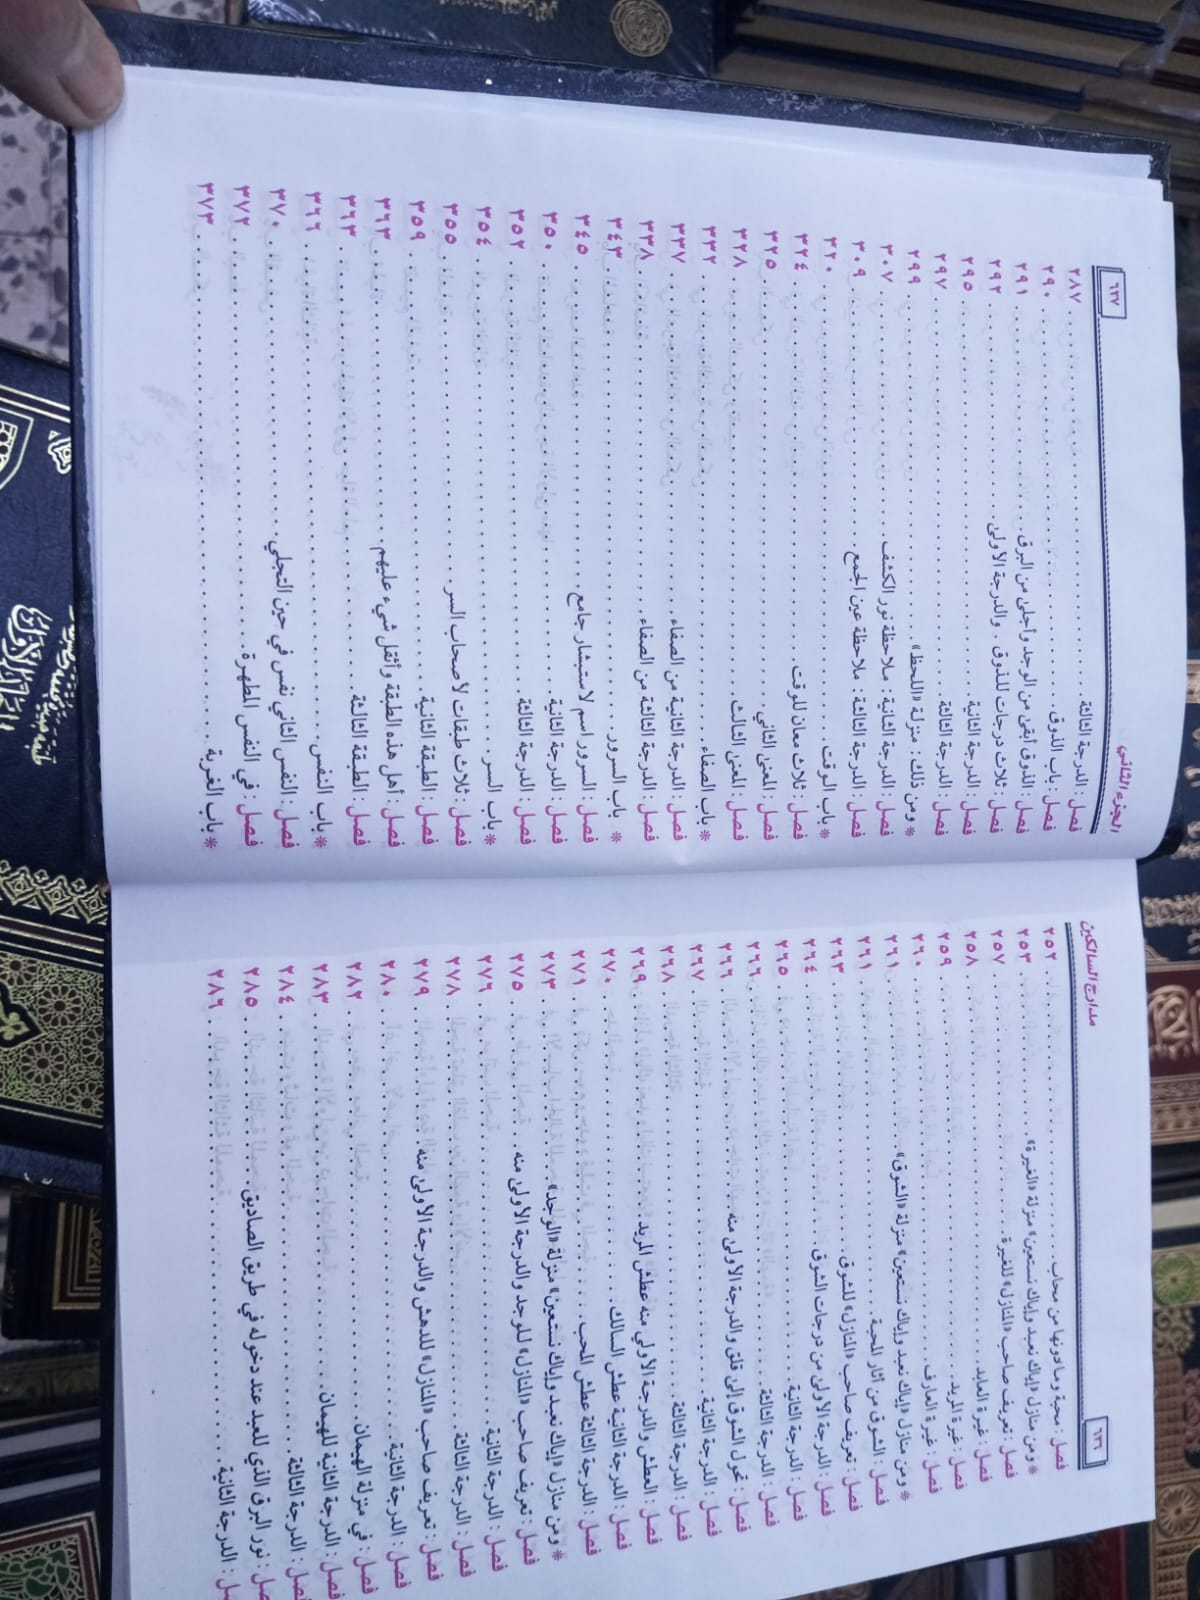 مدارج السالكين
٦٣٦
فصل: محبة وما دونها من محاب ٢٥٢
* ومن منازل «إياك نعبد وإياك نستعين» منزلة «الغيرة» ٢٥٣
فصل: تعريف صاحب «المنازل» للغيرة ٢٥٧
فصل: غيرة العابد ٢٥٨
فصل: غيرة المريد ٢٥٩
فصل: غيرة العارف ٢٦٠
* ومن منازل «إياك نعبد وإياك نستعين» منزلة «الشوق» ٢٦١
فصل: الشوق من آثار المحبة ٢٦١
فصل: تعريف صاحب «المنازل» للشوق ٢٦٣
فصل: الدرجة الأولى من درجات الشوق ٢٦٤
فصل: الدرجة الثانية ٢٦٥
فصل: الدرجة الثالثة ٢٦٦
فصل: تحول الشوق إلى قلق والدرجة الأولى منه ٢٦٦
فصل: الدرجة الثانية ٢٦٧
فصل: الدرجة الثالثة ٢٦٨
فصل: العطش والدرجة الأولي منه عطش المريد ٢٦٩
فصل: الدرجة الثانية عطش السالك ٢٧٠
فصل: الدرجة الثالثة عطش المحب ٢٧١
* ومن منازل «إياك نعبد وإياك نستعين» منزلة «الوجد» ٢٧٣
فصل: تعريف صاحب «المنازل» للوجد والدرجة الأولى منه ٢٧٥
فصل: الدرجة الثانية ٢٧٦
فصل: الدرجة الثالثة ٢٧٨
فصل: تعريف صاحب «المنازل» للدهش والدرجة الأولى منه ٢٧٩
فصل: الدرجة الثانية ٢٨٠
فصل: في منزلة الهيمان ٢٨٢
فصل: الدرجة الثانية للهيمان ٢٨٣
فصل: الدرجة الثالثة ٢٨٤
فصل: نور البرق الذي للعبد عند دخوله في طريق الصادقين ٢٨٥
فصل: الدرجة الثانية ٢٨٦
الجزء الثاني
٦٣٧
فصل: الدرجة الثالثة ٢٨٧
فصل: باب الذوق ٢٩٠
فصل: الذوق أبقى من الوجد وأجلى من البرق ٢٩١
فصل: ثلاث درجات للذوق. والدرجة الأولى ٢٩٢
فصل: الدرجة الثانية ٢٩٥
فصل: الدرجة الثالثة ٢٩٧
* ومن ذلك: منزلة «اللحظ» ٢٩٩
فصل: الدرجة الثانية: ملاحظة نور الكشف ٣٠٧
فصل: الدرجة الثالثة: ملاحظة عين الجمع ٣٠٩
* باب الوقت ٣٢٠
فصل: ثلاث معان للوقت ٣٢٤
فصل: المعنى الثاني ٣٢٥
فصل: المعنى الثالث ٣٢٨
* باب الصفاء ٣٣٢
فصل: الدرجة الثانية من الصفاء ٣٣٧
فصل: الدرجة الثالثة من الصفاء ٣٣٨
* باب السرور ٣٤٣
فصل: السرور اسم لاستبشار جامع ٣٤٥
فصل: الدرجة الثانية ٣٥٠
فصل: الدرجة الثالثة ٣٥٢
* باب السر ٣٥٤
فصل: ثلاث طبقات لأصحاب السر ٣٥٥
فصل: الطبقة الثانية ٣٥٩
فصل: أهل هذه الطبقة وأثقل شيء عليهم ٣٦٣
فصل: الطبقة الثالثة ٣٦٣
* باب النفس ٣٦٦
فصل: النفس الثاني نفس في حين التجلي ٣٧٠
فصل: في النفس المطهرة ٣٧٢
* باب الغربة ٣٧٣